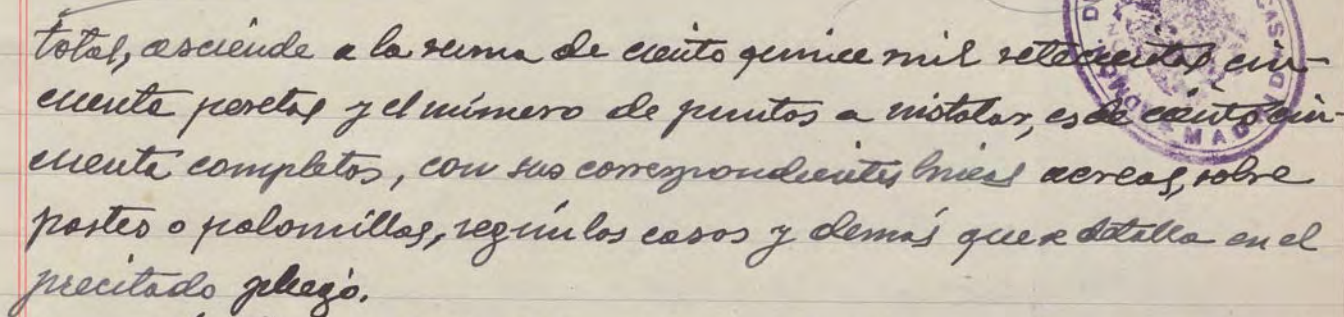 total, asciende a la suma de ciento quince mil setecientas cin-
cuenta pesetas y el número de puntos a instalar, es de ciento cin-
cuenta completos, con sus correspondientes líneas aereas, sobre
postes o palomillas, según los casos y demás que se detalla en el
precitado pliego.